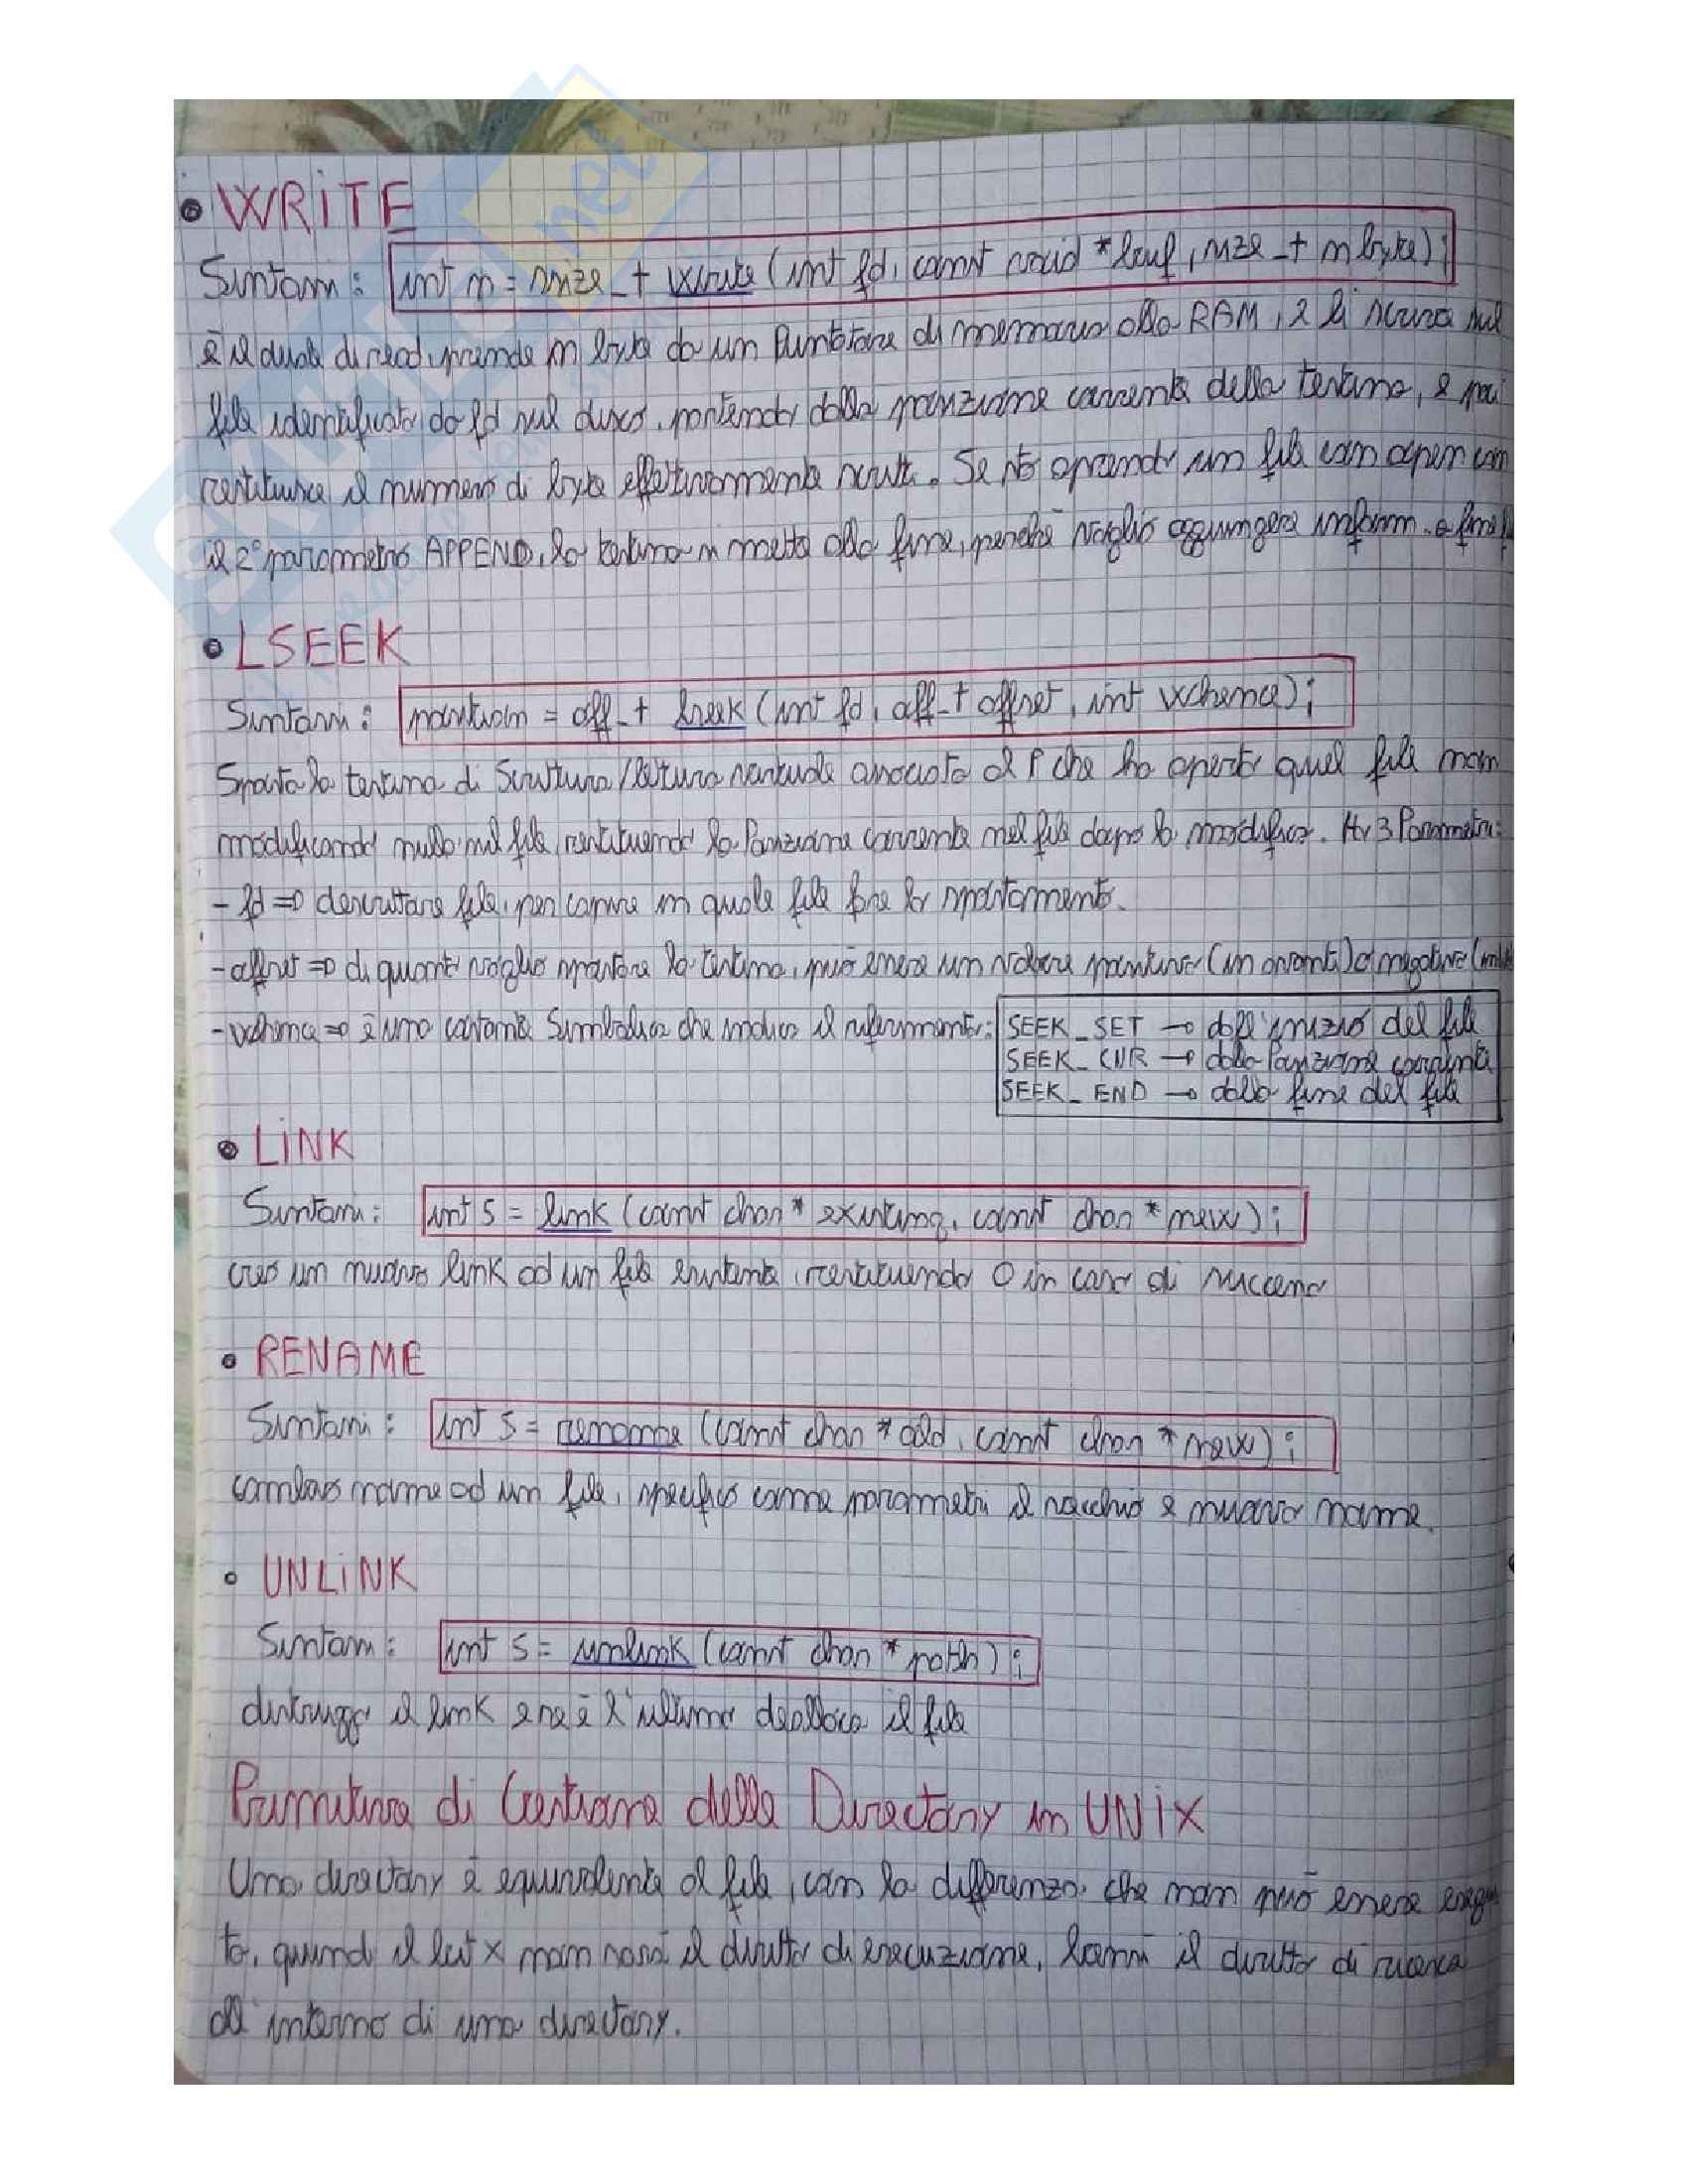 • WRITE
Sintassi: int n = ssize_t write (int fd, const void *buf, size_t nbyte);
è il duale di read, prende n byte da un Puntatore di memoria alla RAM, e li scrive sul
file identificato da fd sul disco, partendo dalla posizione corrente della testina, e poi
restituisce il numero di byte effettivamente scritti. Se sto aprendo un file con open con
il 2° parametro APPEND, la testina si mette alla fine, perché voglio aggiungere inform. a fine
• LSEEK
Sintassi: position = off_t lseek (int fd, off_t offset, int whence);
Sposta la testina di Scrittura/lettura virtuale associata al P che ha aperto quel file non
modificando nulla nel file, restituendo la Posizione corrente nel file dopo la modifica. Ha 3 Parametri:
- fd => descrittore file, per capire in quale file fare lo spostamento.
- offset => di quanto voglio spostare la testina, può essere un valore positivo (in avanti) o negativo
- whence => è una costante Simbolica che indica il riferimento: SEEK_SET → dall'inizio del file
SEEK_CUR → dalla Posizione corrente
SEEK_END → dalla fine del file
• LINK
Sintassi: int s = link (const char * existing, const char * new);
crea un nuovo link ad un file esistente, restituendo 0 in caso di successo
• RENAME
Sintassi: int s = rename (const char * old, const char * new);
cambia nome ad un file, specifico come parametri il vecchio e nuovo nome.
• UNLINK
Sintassi: int s = unlink (const char * path);
distrugge il link e se è l'ultimo dealloca il file
Primitive di Gestione delle Directory in UNIX
Una directory è equivalente al file, con la differenza che non può essere esegui
ta, quindi il bit x non sarà il diritto di esecuzione, bensì il diritto di ricerca
all'interno di una directory.